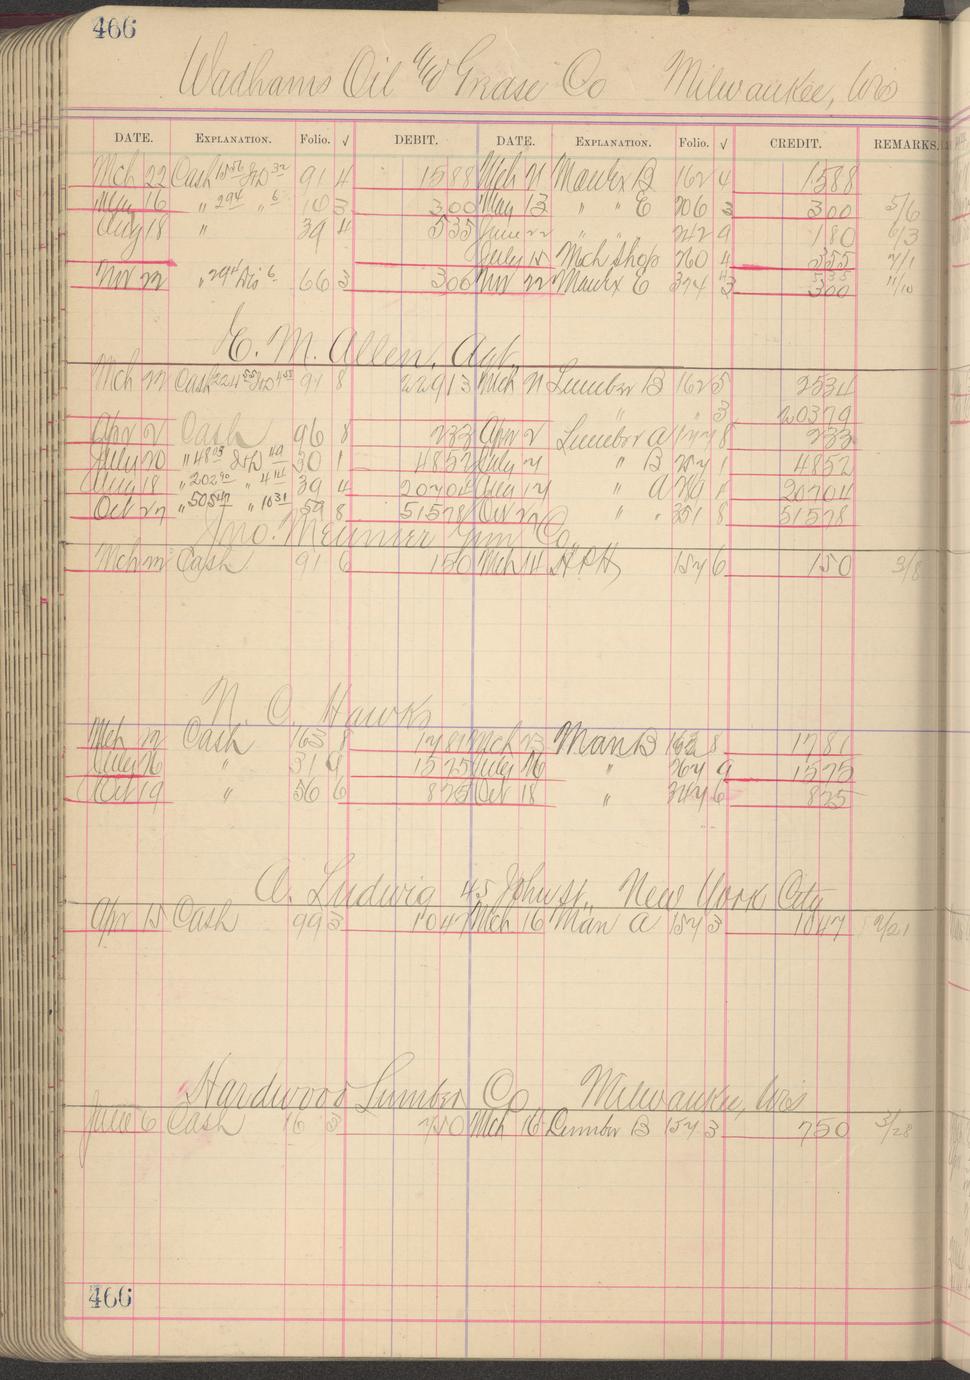 466
Wadhams Oil and Grease Co Milwaukee, Wis
DATE. EXPLANATION. Folio. √ DEBIT. DATE. EXPLANATION. Folio. √ CREDIT. REMARKS.
Mch 22 Cash 91 4 1588 Mch 21 Manfx B 162 4 1588
May 16 " 294 " 6 10 3 300 May 13 " " E 206 3 300 5/6
Aug 18 " 39 4 535 June 22 " " 242 9 180 6/13
July 15 Mch Shop 260 4 355 7/1
535
Nov 22 " 294 Dis 6 66 3 300 Nov 22 Manfx E 374 3 300 11/10
E. M. Allen, Agt.
Mch 22 Cash 91 8 22913 Mch 21 Lumber B 162 5 2534
" " 3 20379
Apr 2 Cash 96 8 233 Apr 2 Lumber A 177 8 233
July 20 30 1 4852 July " B 1 4852
Aug 18 " 202 90 " 4 14 39 4 20704 Aug 17 " A 20704
Oct 27 " 505 47 " 10 31 59 8 51578 Oct 22 " " 351 8 51578
Jno. Meunier Gun Co.
Mch 22 Cash 91 6 150 Mch 14 H.P.H 157 6 150 3/8
N. C. Hawks
Mch 12 Cash 163 8 1781 Mch 23 Man B 163 8 1781
July 26 " 31 8 1575 July 16 " 267 9 1575
Oct 19 " 56 6 825 Oct 18 " 347 6 825
A. Ludwig 45 John St. New York City
Apr 15 Cash 99 3 1047 Mch 16 Man A 157 3 1047 2/21
Hardwood Lumber Co Milwaukee, Wis
June 6 Cash 16 3 750 Mch 16 Lumber B 157 3 750 3/28
466